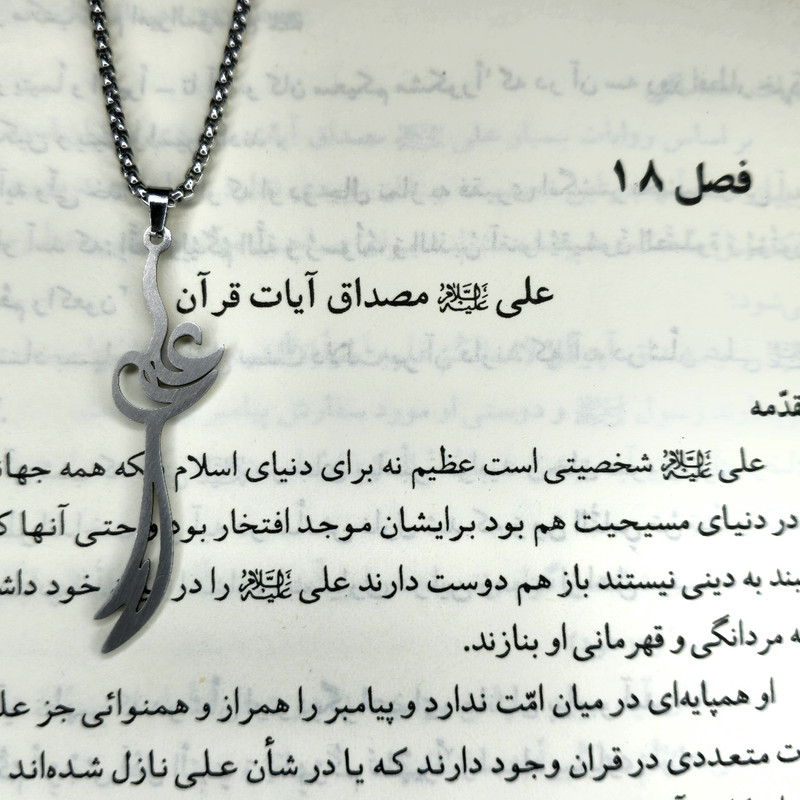 فصل ۱۸
علی علیه السلام مصداق آیات قرآن
علی علیه السلام شخصیتی است عظیم نه برای دنیای اسلام که همه
در دنیای مسیحیت هم بود برایشان موجد افتخار بود و حتی آنها
به دینی نیستند باز هم دوست دارند علی علیه السلام را در خود
مردانگی و قهرمانی او بنازند.
او همپایه‌ای در میان امّت ندارد و پیامبر را همراز و همنوائی جز
متعددی در قران وجود دارند که یا در شأن علی نازل شده‌اند
علی